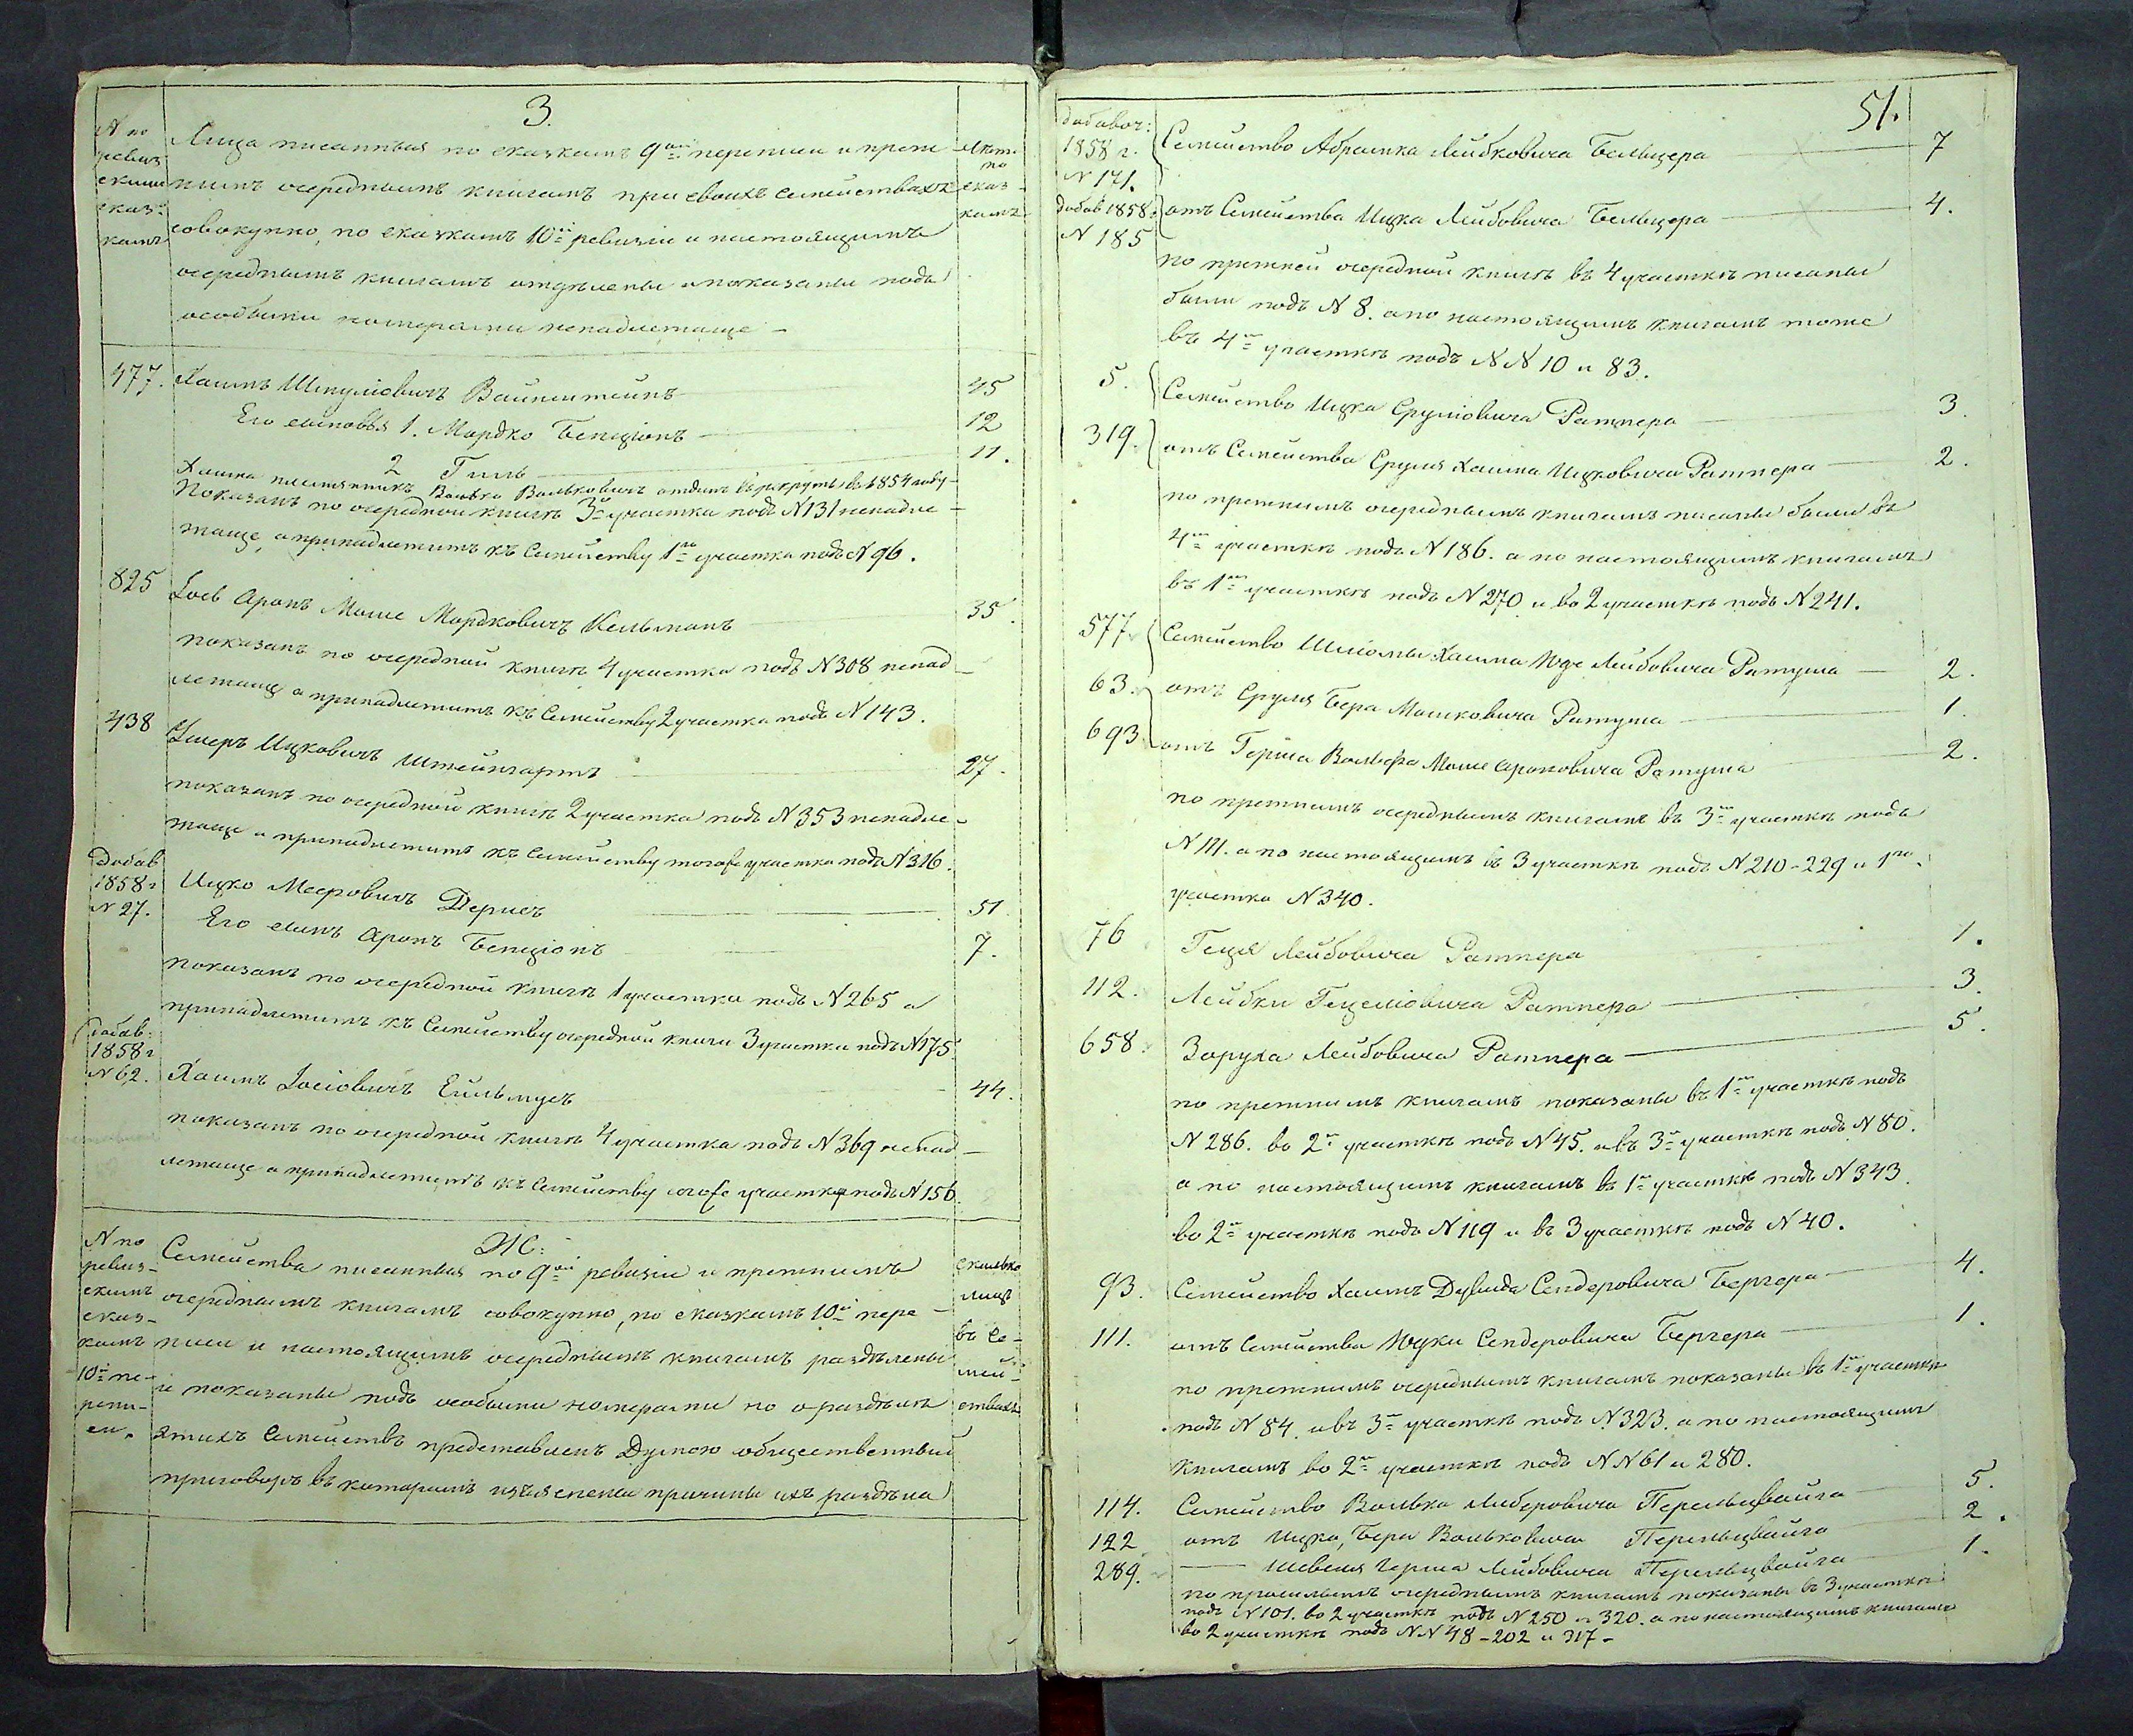 3.
N по ревизскимъ сказкамъ
Лѣтъ по сказкамъ
Лица писанныя по сказкамъ 9ой переписи и преж
нимъ очереднымъ книгамъ при своихъ семействахъ
совокупно, по сказкамъ 10й ревизіи и настоящимъ
очереднымъ книгамъ отдѣлены и показаны подъ
особыми номерами ненадлежаще –
477. Хаимъ Шмулiовичъ Вайнштейнъ 45
Его сыновья 1. Мордко Бенціонъ 12
2 Гиль 11.
Хаима племянникъ Волько Вольковичъ отданъ въ рекруты въ 1854 году –
Показанъ по очередной книгѣ 3го участка подъ N 131 ненадле–
жаще, а принадлежитъ къ Семейству 1го участка подъ N 96.
825 Iось Аронъ Моше Мордковичъ Кельманъ 35.
показанъ по очередной книгѣ 4 участка подъ N 308 ненад–
лежаще а принадлежитъ къ Семейству 2 участка подъ N 143.
438 Ушеръ Ицковичъ Штейнгартъ 27.
показанъ по очередной книгѣ 2 участка подъ N 353 ненадле–
жаще а принадлежитъ къ Семейству тогоже участка подъ N 316.
Добав 1858 г N 27. Ицко Мееровичъ 51
Его сынъ Аронъ Бенціонъ 7.
показанъ по очередной книгѣ 1 участка подъ N 265 а
принадлежитъ къ Семейству очередной книги 3 участка подъ N 175.
Добав: 1858 г N 62. Хаимъ Iосiовичъ 44.
показанъ по очередной книгѣ 4 участка подъ N 369 ненад–
лежаще а принадлежитъ къ Семейству тогоже участка подъ N 156.
Ж:
N по ревизскимъ сказкамъ 10й переписи.
Сколько лицъ въ Семействахъ
Семейства писанныя по 9ой ревизіи и прежнимъ
очереднымъ книгамъ совокупно, по сказкамъ 10й пере–
писи и настоящимъ очереднымъ книгамъ раздѣлены
и показаны подъ особыми номерами но о раздѣлѣ
этихъ Семействъ представленъ Думою общественный
приговоръ въ которомъ изъяснены причины ихъ раздѣла
51.
добавоч: 1858 г. N 171. Семейство Абрамка Лейбковича Бельцера 7
добав 1858. N 185 отъ Семейства Ицка Лейбовича Бельцера 4.
по прежней очередной книгѣ въ 4 участкѣ писаны
были подъ N 8. а по настоящимъ книгамъ тоже
въ 4мъ участкѣ подъ N N 10 и 83.
5. Семейство Ицка Срулiовича Ратнера 3.
319. отъ Семейства Сруля Хаима Ицковича Ратнера 2.
по прежнимъ очереднымъ книгамъ писаны были въ
4мъ участкѣ подъ N 186. а по настоящимъ книгамъ
въ 1мъ участкѣ подъ N 270 и во 2 участкѣ подъ N 241.
577 Семейство Шлiомы Хаима Юдк Лейбовича Ратуша 2.
63. отъ Сруля Бера Мошковича Ратуша 1.
693 отъ Герша Вольфа Моше Ароновича Ратуша 2.
по прежнимъ очереднымъ книгамъ въ 3мъ участкѣ подъ
N 111. а по настоящимъ въ 3 участкѣ подъ N 210-229 и 1го
участка N 340.
76 Геця Лейбовича Ратнера 1.
112. Лейбки Гецелiовича Ратнера 3.
658. Заруха Лейбовича Ратнера 5.
по прежнимъ книгамъ показаны въ 1мъ участкѣ подъ
N 286. во 2мъ участкѣ подъ N 45. и въ 3мъ участкѣ подъ N 80.
а по настоящимъ книгамъ въ 1мъ участкѣ подъ N 343.
во 2мъ участкѣ подъ N 119 и въ 3 участкѣ подъ N 40.
93. Семейство Хаимъ Дувида Сендеровича Бергера 4.
111. отъ Семейства Юдки Сендеровича Бергера 1.
по прежнимъ очереднымъ книгамъ показаны въ 1мъ участкѣ
подъ N 84. и въ 3мъ участкѣ подъ N 323. а по настоящимъ
книгамъ во 2мъ участкѣ подъ N N 61 и 280.
114. Семейство Волька Либеровича Перельцвайга 5.
122 отъ Ицка, Бера Вольковича Перельцвайга 2.
289. — Шевеля Герша Лейбовича Перельцвайга 1.
по прошлымъ очереднымъ книгамъ показаны въ 3 участкѣ
подъ N 101. во 2 участкѣ подъ N 250 и 320. а по настоящимъ книгамъ
во 2 участкѣ подъ N N 48-202 и 317 –